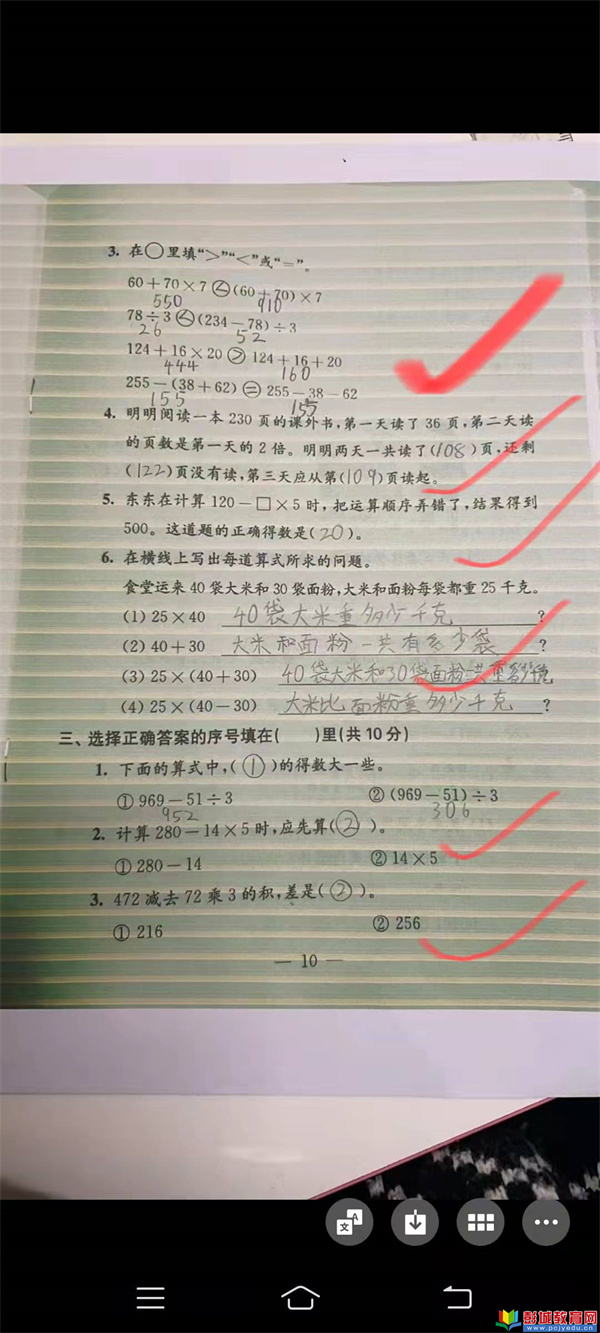 3. 在○里填“>”“<”或“=”。
60+70×7<(60+70)×7
550 910
78÷3<(234-78)÷3
26 52
124+16×20>124+16+20
444 160
255-(38+62)=255-38-62
155 155
4. 明明阅读一本230页的课外书,第一天读了36页,第二天读
的页数是第一天的2倍。明明两天一共读了(108)页,还剩
(122)页没有读,第三天应从第(109)页读起。
5. 东东在计算120-□×5时,把运算顺序弄错了,结果得到
500。这道题的正确得数是(20)。
6. 在横线上写出每道算式所求的问题。
食堂运来40袋大米和30袋面粉,大米和面粉每袋都重25千克。
(1) 25×40 40袋大米重多少千克?
(2) 40+30 大米和面粉一共有多少袋?
(3) 25×(40+30) 40袋大米和30袋面粉一共重多少千克
(4) 25×(40-30) 大米比面粉重多少千克?
三、选择正确答案的序号填在( )里(共10分)
1. 下面的算式中,(①)的得数大一些。
①969-51÷3 ②(969-51)÷3
952 306
2. 计算280-14×5时,应先算(②)。
①280-14 ②14×5
3. 472减去72乘3的积,差是(②)。
①216 ②256
— 10 —
彭城教育网
www.pcjyedu.cn